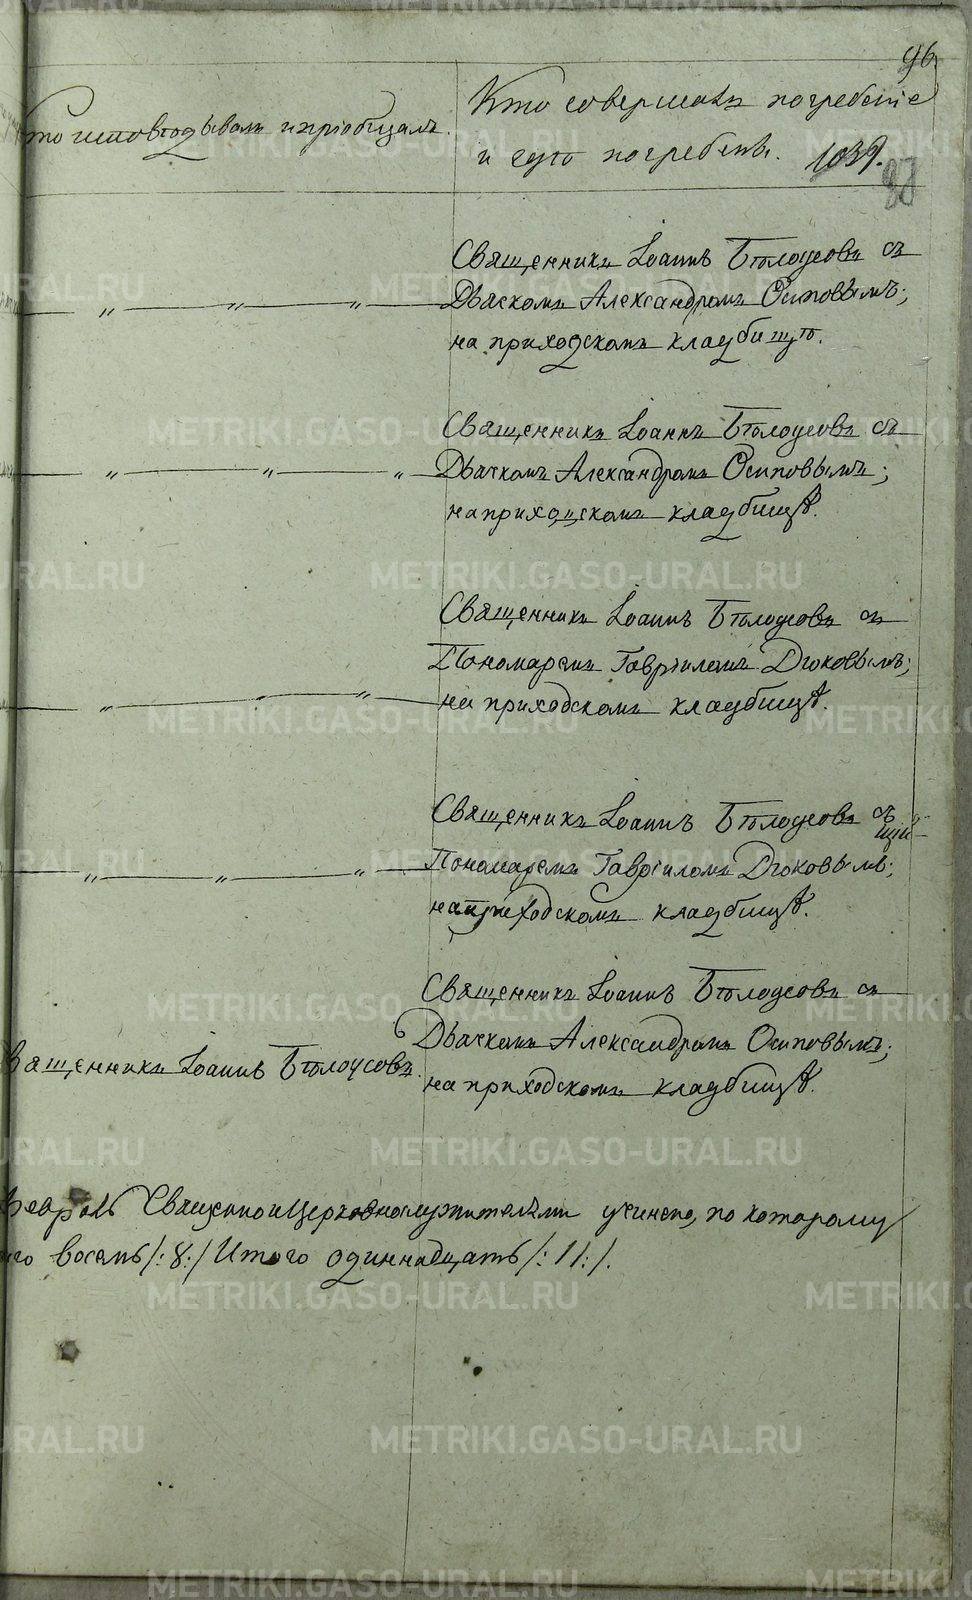 96.
Кто исповѣдывалъ и пріобщалъ.
Кто совершалъ погребеніе
и гдѣ погребенъ. 1039.
Священникъ Іоаннъ Бѣлоусовъ съ
Дьячкомъ Александромъ Осиповымъ;
на приходскомъ кладбищѣ.
Священникъ Іоаннъ Бѣлоусовъ съ
Дьячкомъ Александромъ Осиповымъ;
на приходскомъ кладбищѣ.
Священникъ Іоаннъ Бѣлоусовъ съ
Пономаремъ Гавріиломъ Дюковымъ;
на приходскомъ кладбищѣ.
Священникъ Іоаннъ Бѣлоусовъ съ
Пономаремъ Гавріиломъ Дюковымъ;
на приходскомъ кладбищѣ.
Священникъ Іоаннъ Бѣлоусовъ съ
Дьячкомъ Александромъ Осиповымъ;
на приходскомъ кладбищѣ.
Священникъ Іоаннъ Бѣлоусовъ.
Февраль Священноицерковнослужителями учинено, по которому
го восемь /:8:/ Итого одиннадцать /:11:/.
METRIKI.GASO-URAL.RU